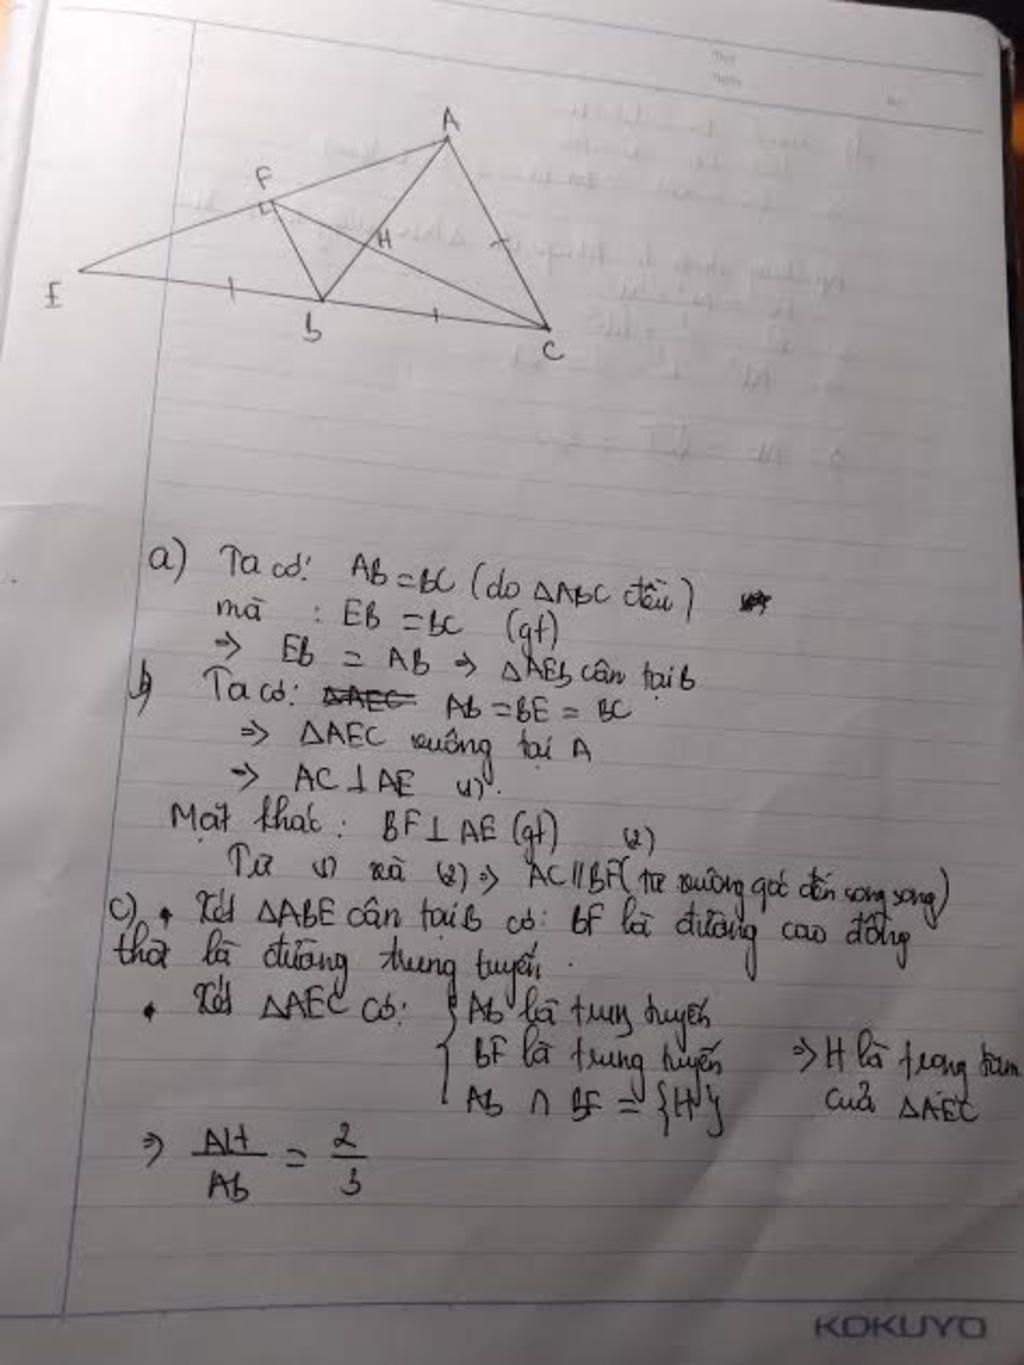 A
F
H
E
B
C
a) Ta có: AB = BC (do △ABC đều)
mà : EB = BC (gt)
⇒ EB = AB ⇒ △AEB cân tại B
b) Ta có: △AEC AB = BE = BC
⇒ △AEC vuông tại A
⇒ AC ⊥ AE (1).
Mặt khác: BF ⊥ AE (gt) (2)
Từ (1) và (2) ⇒ AC // BF (từ vuông góc đến song song)
c) • Xét △ABE cân tại B có: BF là đường cao đồng
thời là đường trung tuyến.
• Xét △AEC có: { AB là trung tuyến
BF là trung tuyến ⇒ H là trọng tâm
AB ∩ BF = {H} của △AEC
⇒ AH/AB = 2/3
KOKUYO